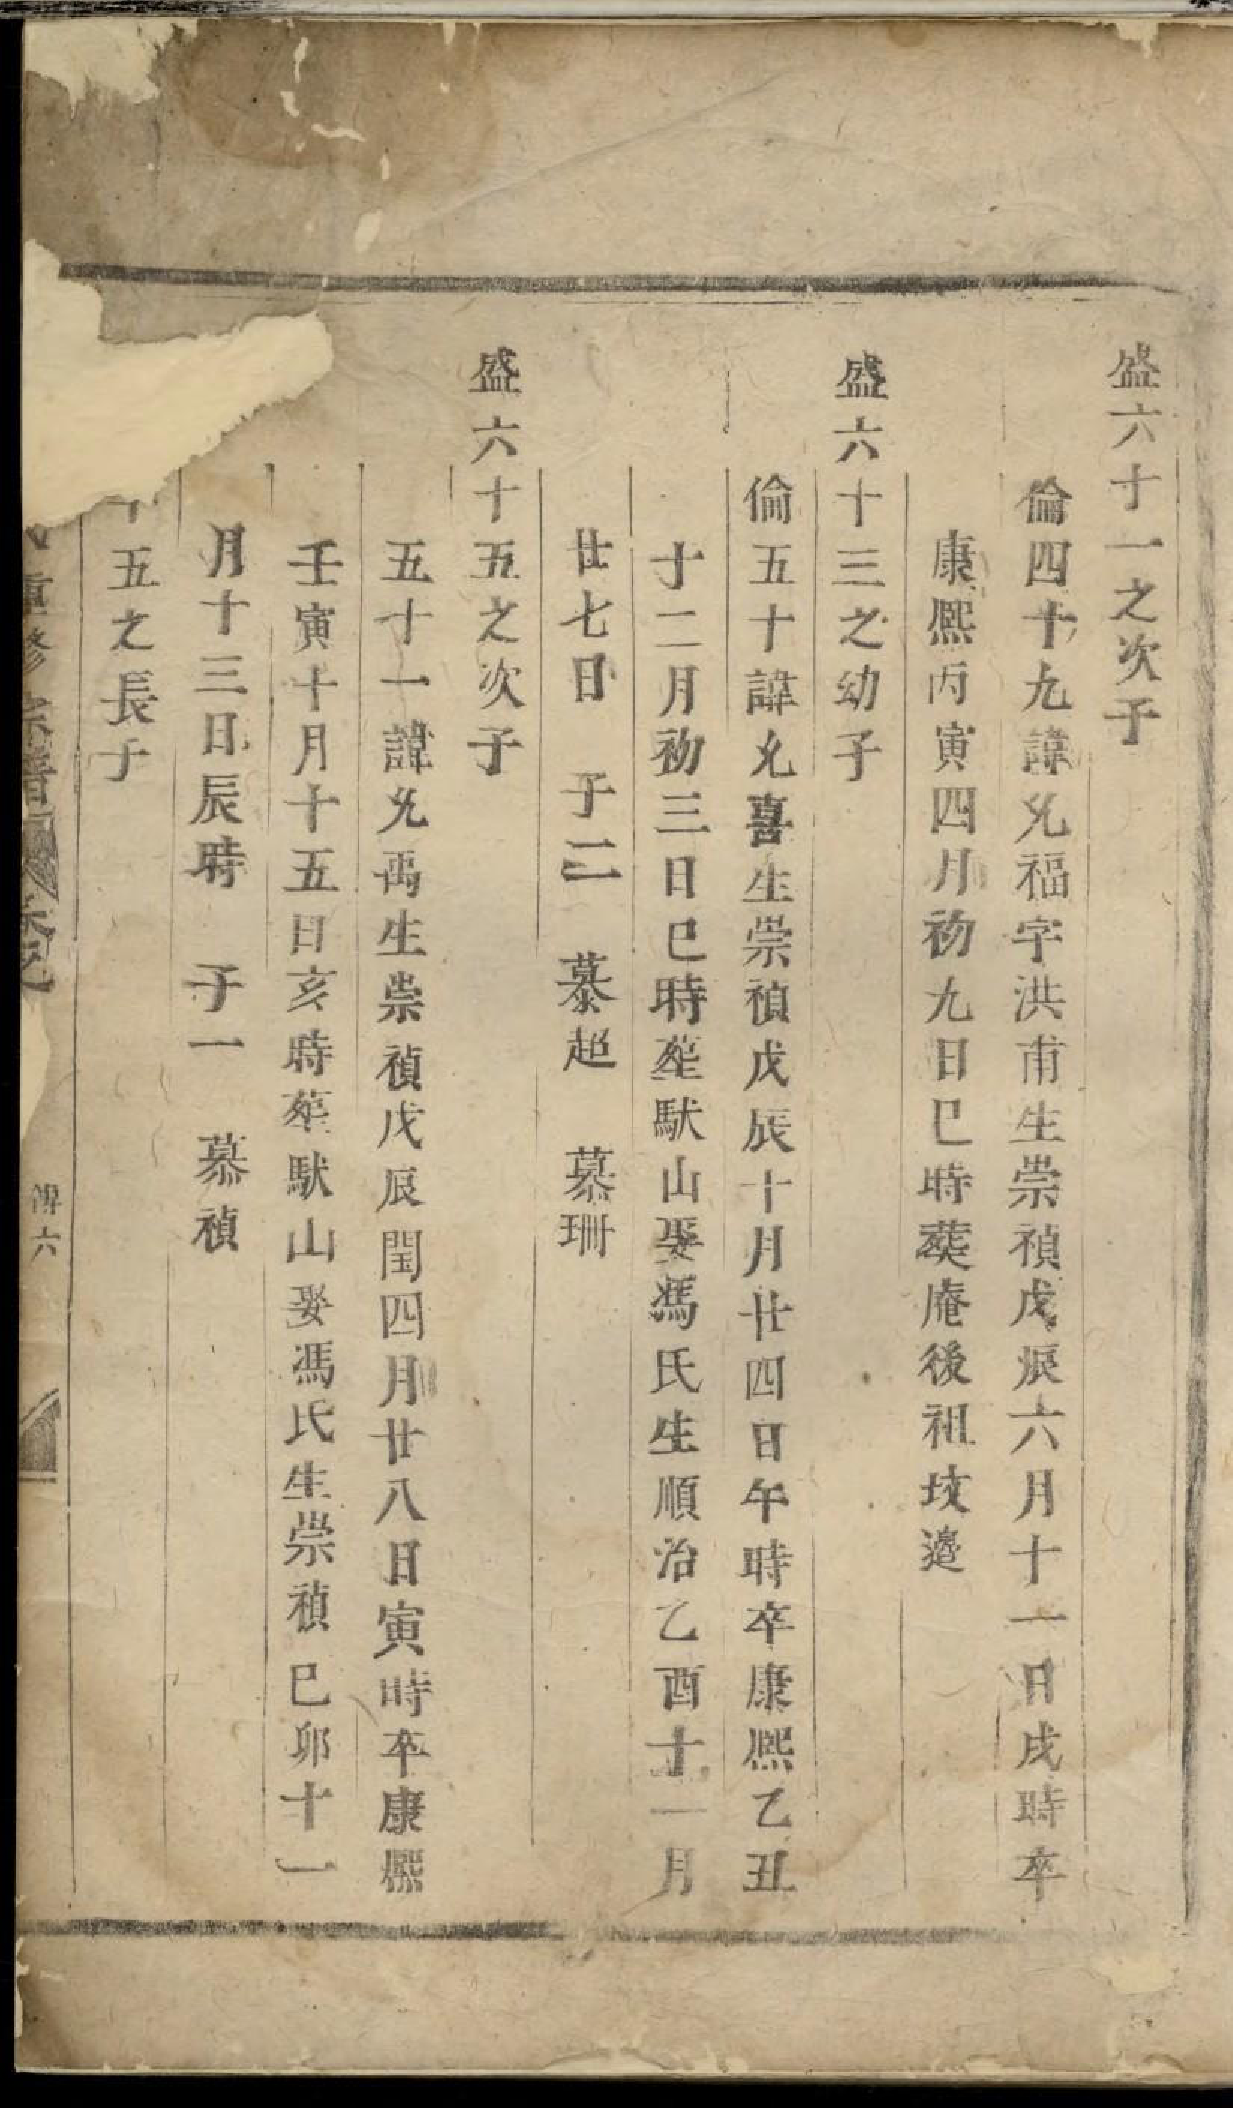 盛六十一之次子
倫四十九諱兊福字洪甫生崇禎戊辰六月十一日戌時卒
康熙丙寅四月初九日巳時葬庵後祖坟邉
盛六十三之幼子
倫五十諱兊喜生崇禎戊辰十月廿四日午時卒康熙乙丑
十二月初三日巳時塟馱山娶馮氏生順治乙酉十一月
廿七日　子二　慕超　慕珊
盛六十五之次子
五十一諱兊禹生崇禎戊辰閏四月廿八日寅時卒康熙
壬寅十月十五日亥時塟馱山娶馮氏生崇禎巳卯十一
月十三日辰時　子一　慕禎
五之長子
重修宗譜　卷之
六